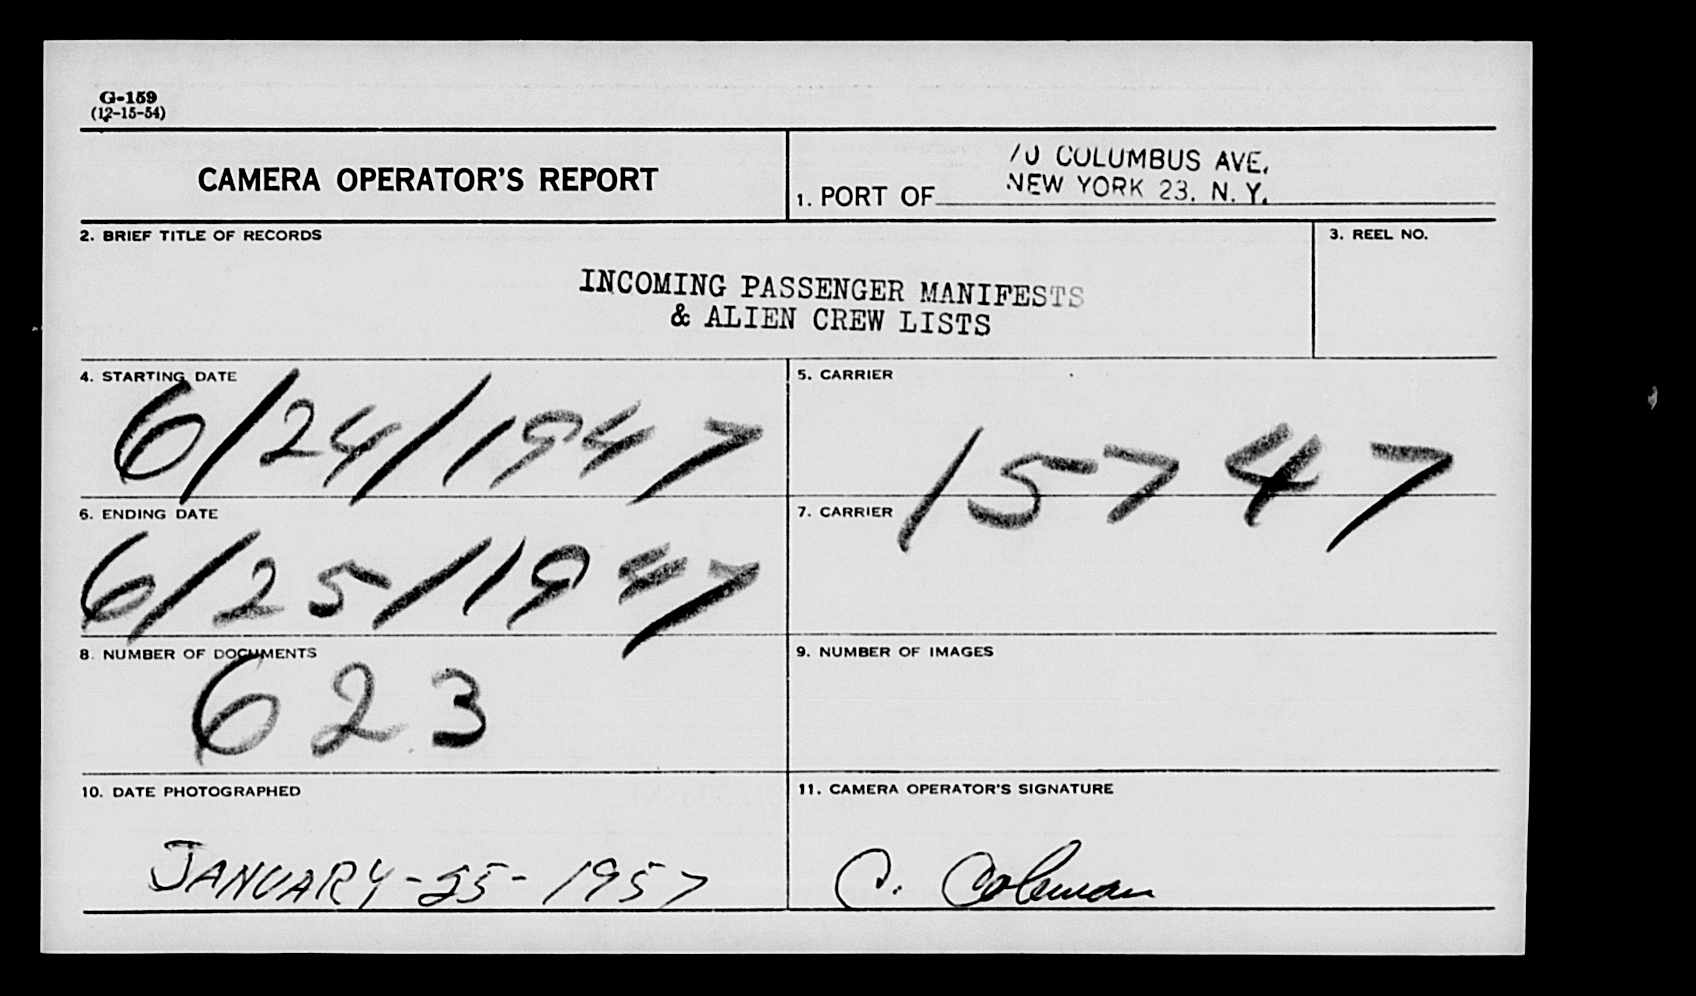 G-159
(12-15-54)
CAMERA OPERATOR'S REPORT
70 COLUMBUS AVE.
1. PORT OF NEW YORK 23, N. Y.
2. BRIEF TITLE OF RECORDS
3. REEL NO.
INCOMING PASSENGER MANIFESTS
& ALIEN CREW LISTS
4. STARTING DATE
6/24/1947
5. CARRIER
15747
6. ENDING DATE
6/25/1947
7. CARRIER
8. NUMBER OF DOCUMENTS
623
9. NUMBER OF IMAGES
10. DATE PHOTOGRAPHED
JANUARY-25-1957
11. CAMERA OPERATOR'S SIGNATURE
C. Coleman